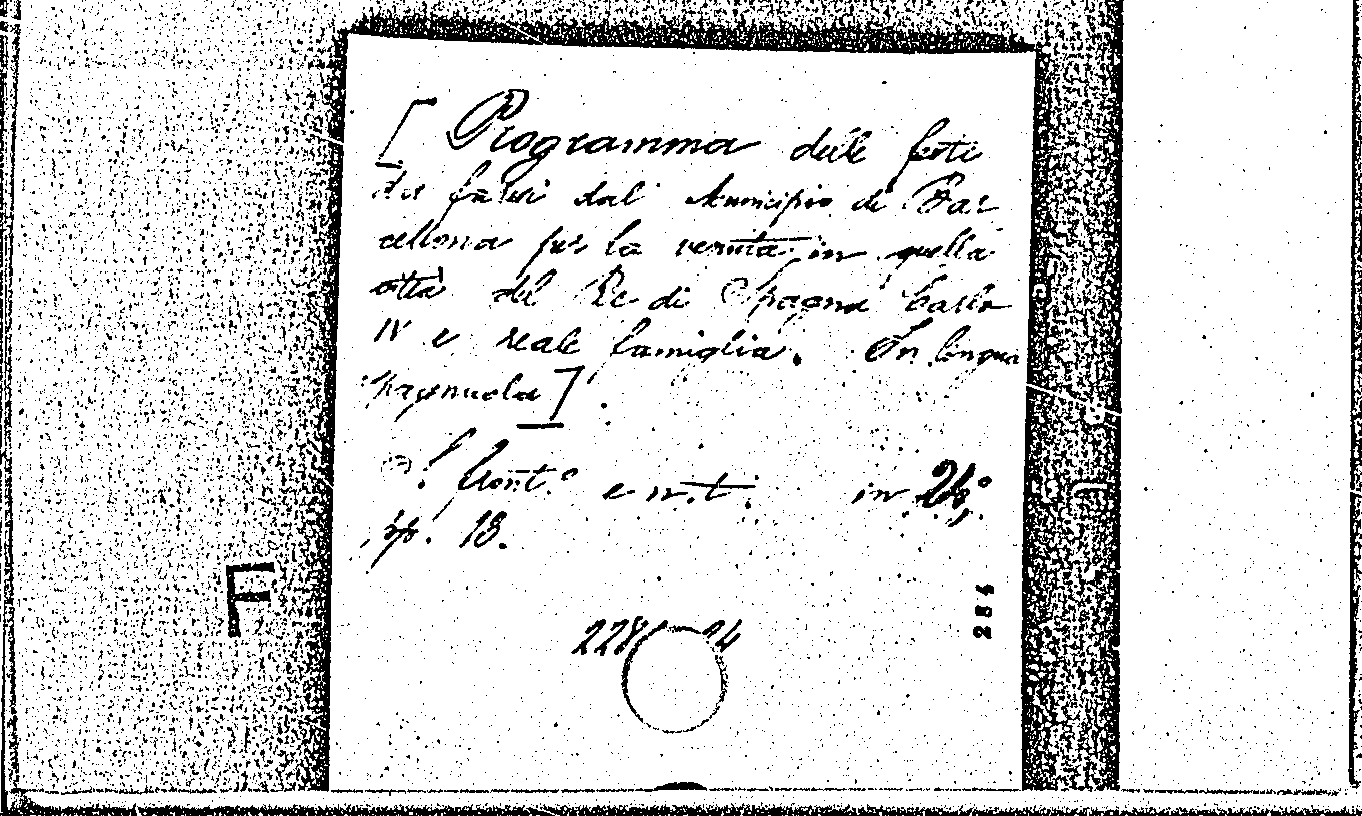 [ Programma delle feste
da farsi dal Municipio di Bar
cellona per la venuta in quella
città del Re di Spagna Carlo
IV e reale famiglia. In lingua
spagnuola].
S. front.e e n.t. in 24°,
pp. 18.
284
F